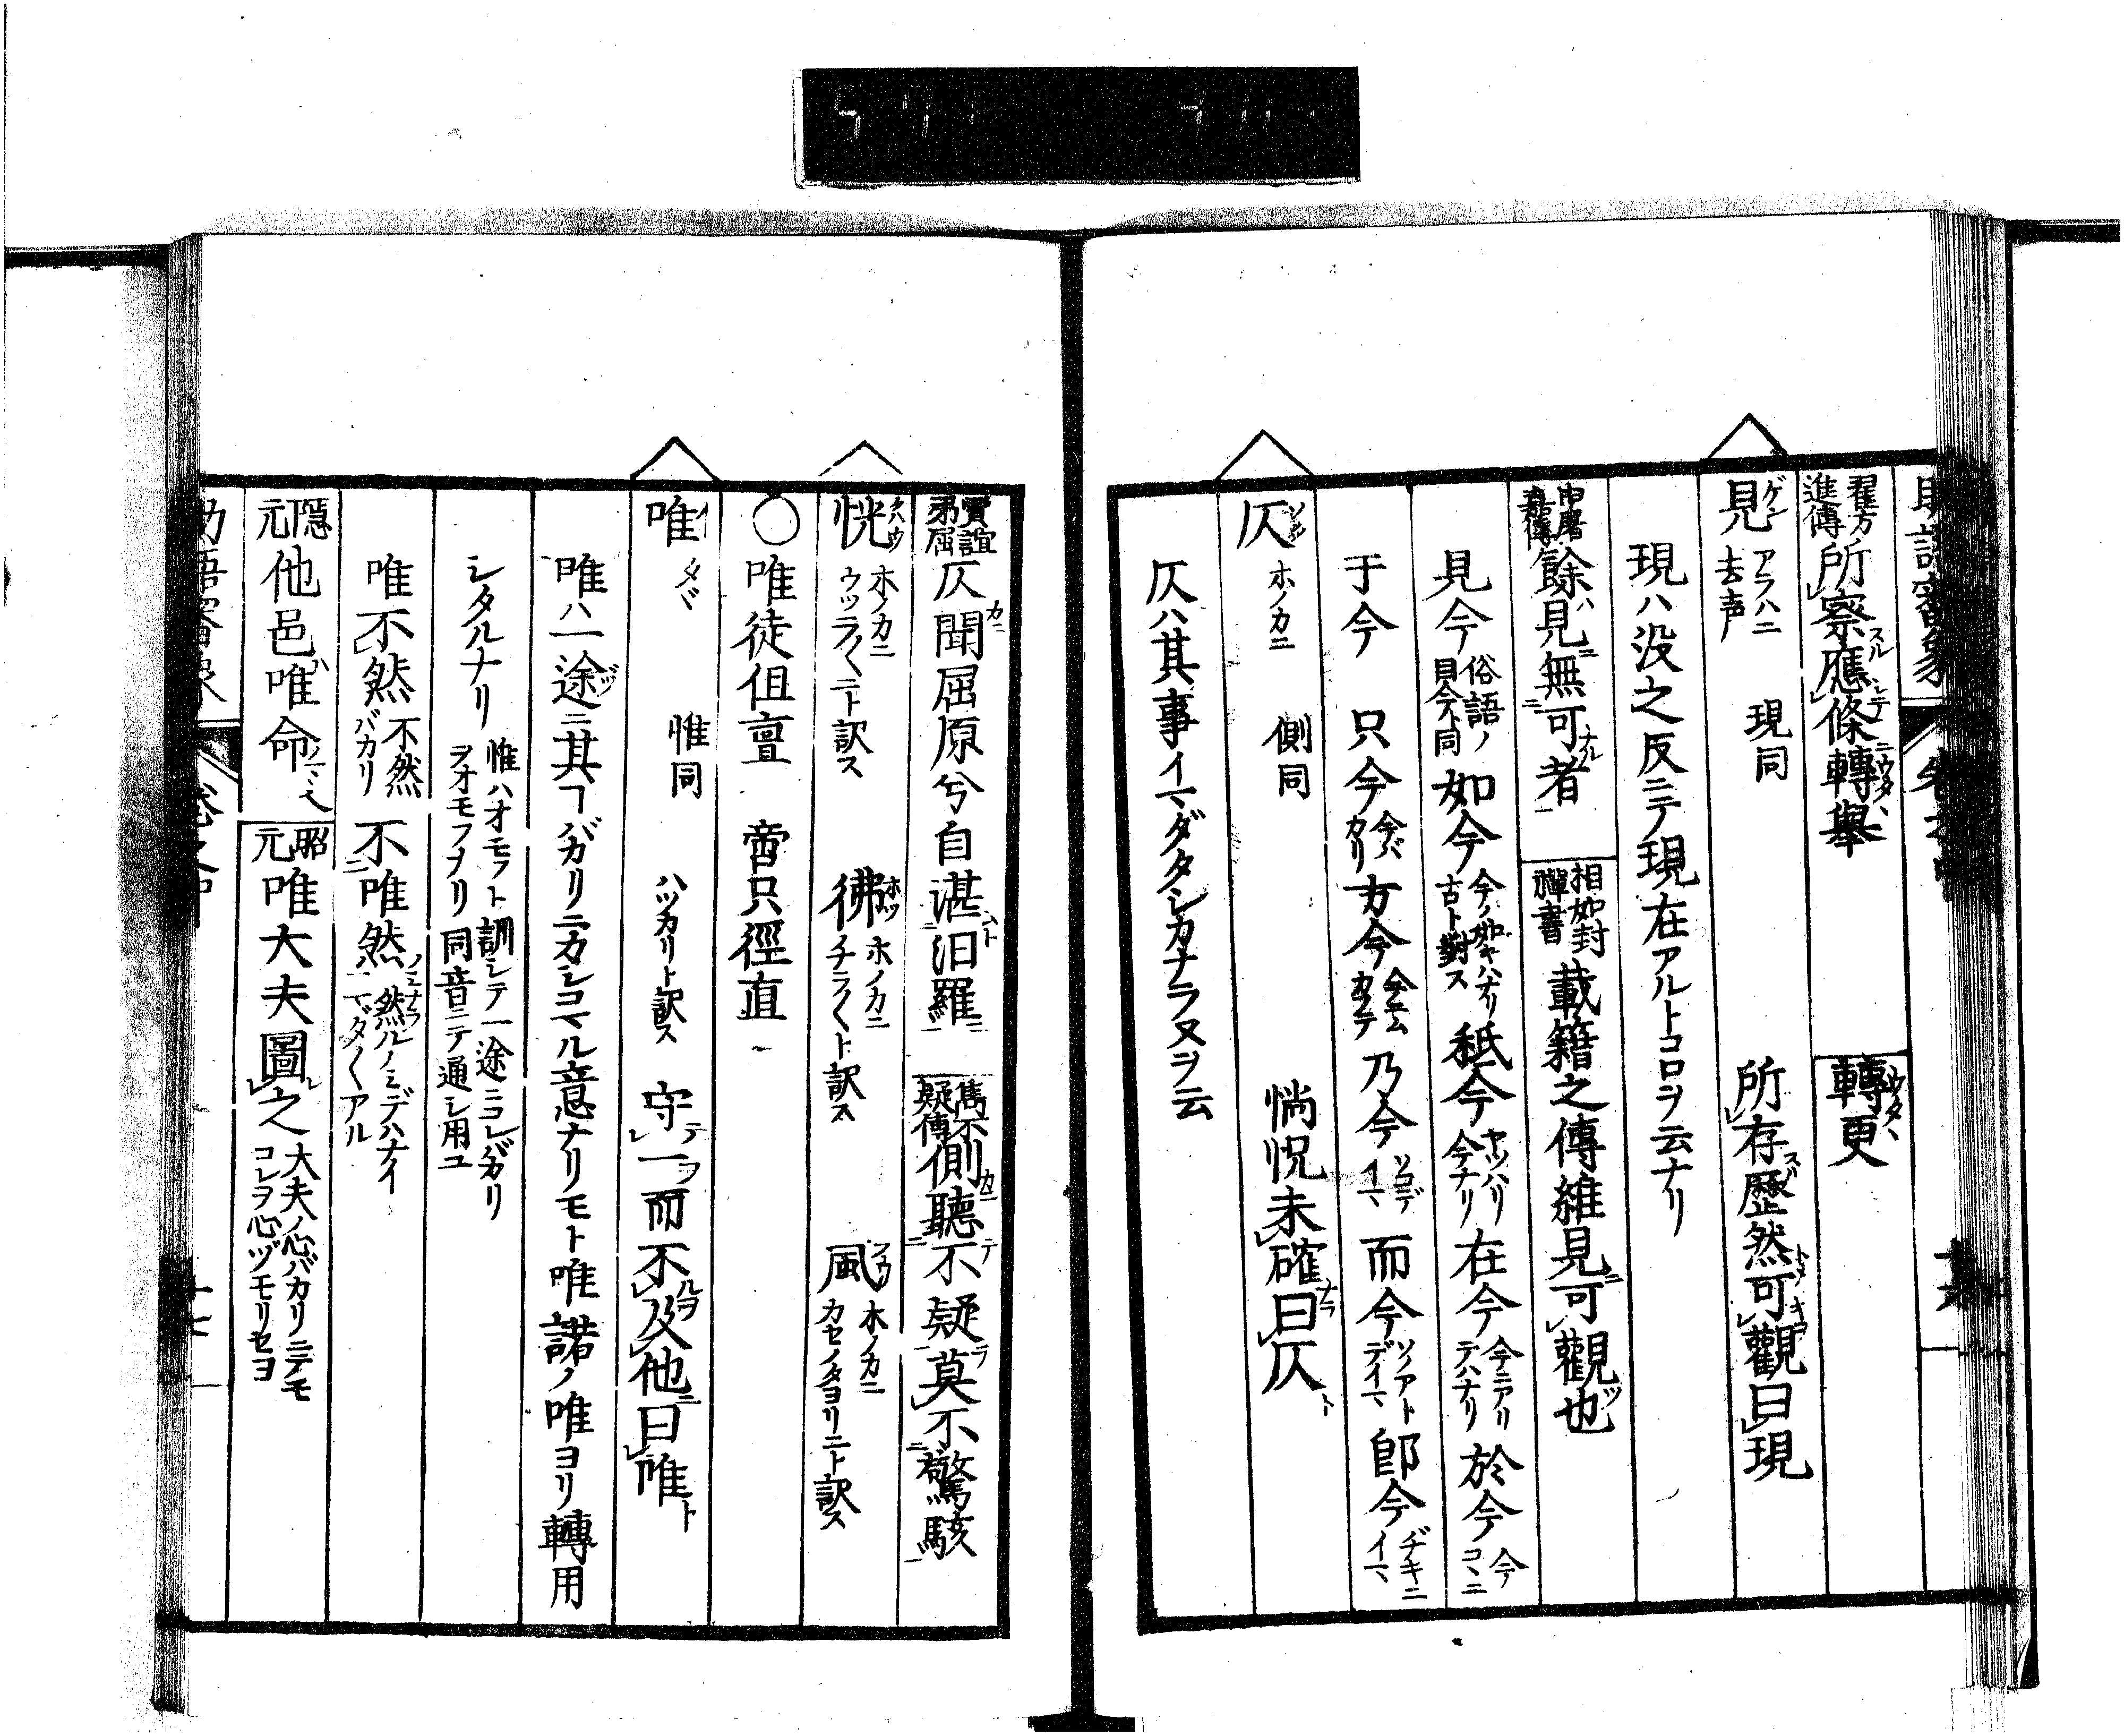 翟方進傳 所察應條轉擧 轉更
見 ゲン アラハニ 去声 現同 所存歷然可觀曰現
現ハ没之反ニテ現在アルトコロヲ云ナリ
申屠嘉傳 餘見無可者 相如封禪書 載籍之傳維見可觀也
見今 俗語ノ目今ト同 如今 今ノ如キハナリ古ト對ス 秖今 ヤッハリ今ナリ 在今 今ニアリテハナリ 於今 今コヽニ
于今 只今 今バカリ 方今 乃今 ソコデイマ 而今 ソノアトデイマ 卽今 ヂキニイマ
仄 ホノカニ 側同 惝怳未確曰仄
仄ハ其事イマダタシカナラヌヲ云
賈誼弟屈 仄聞屈原兮自湛汨羅 雋不疑傳 側聽不疑莫不驚駭
恍 ホノカニ ウッラ〱ニト訳ス 彿 ホノカニ チラ〱ト訳ス 風 ホノカニ カセノタヨリニト訳ス
〇唯徒但亶 啻只徑直
唯 イ タヾ 惟同 ハッカリト訳ス 守一而不及他曰唯
唯ハ一途ニ其ヿバガリニカシコマル意ナリモト唯諾ノ唯ヨリ轉用
シタルナリ 惟ハオモフト訓シテ一途ニコレバガリヲオモフヿナリ同音ニテ通シ用ユ
唯不然 不然バカリ 不唯然 然ルノミデハナイマダ〱アル
隱元 他邑唯命 昭元 唯大夫圖之 大夫ノ心バカリニテモコレヲ心ヅモリセヨ